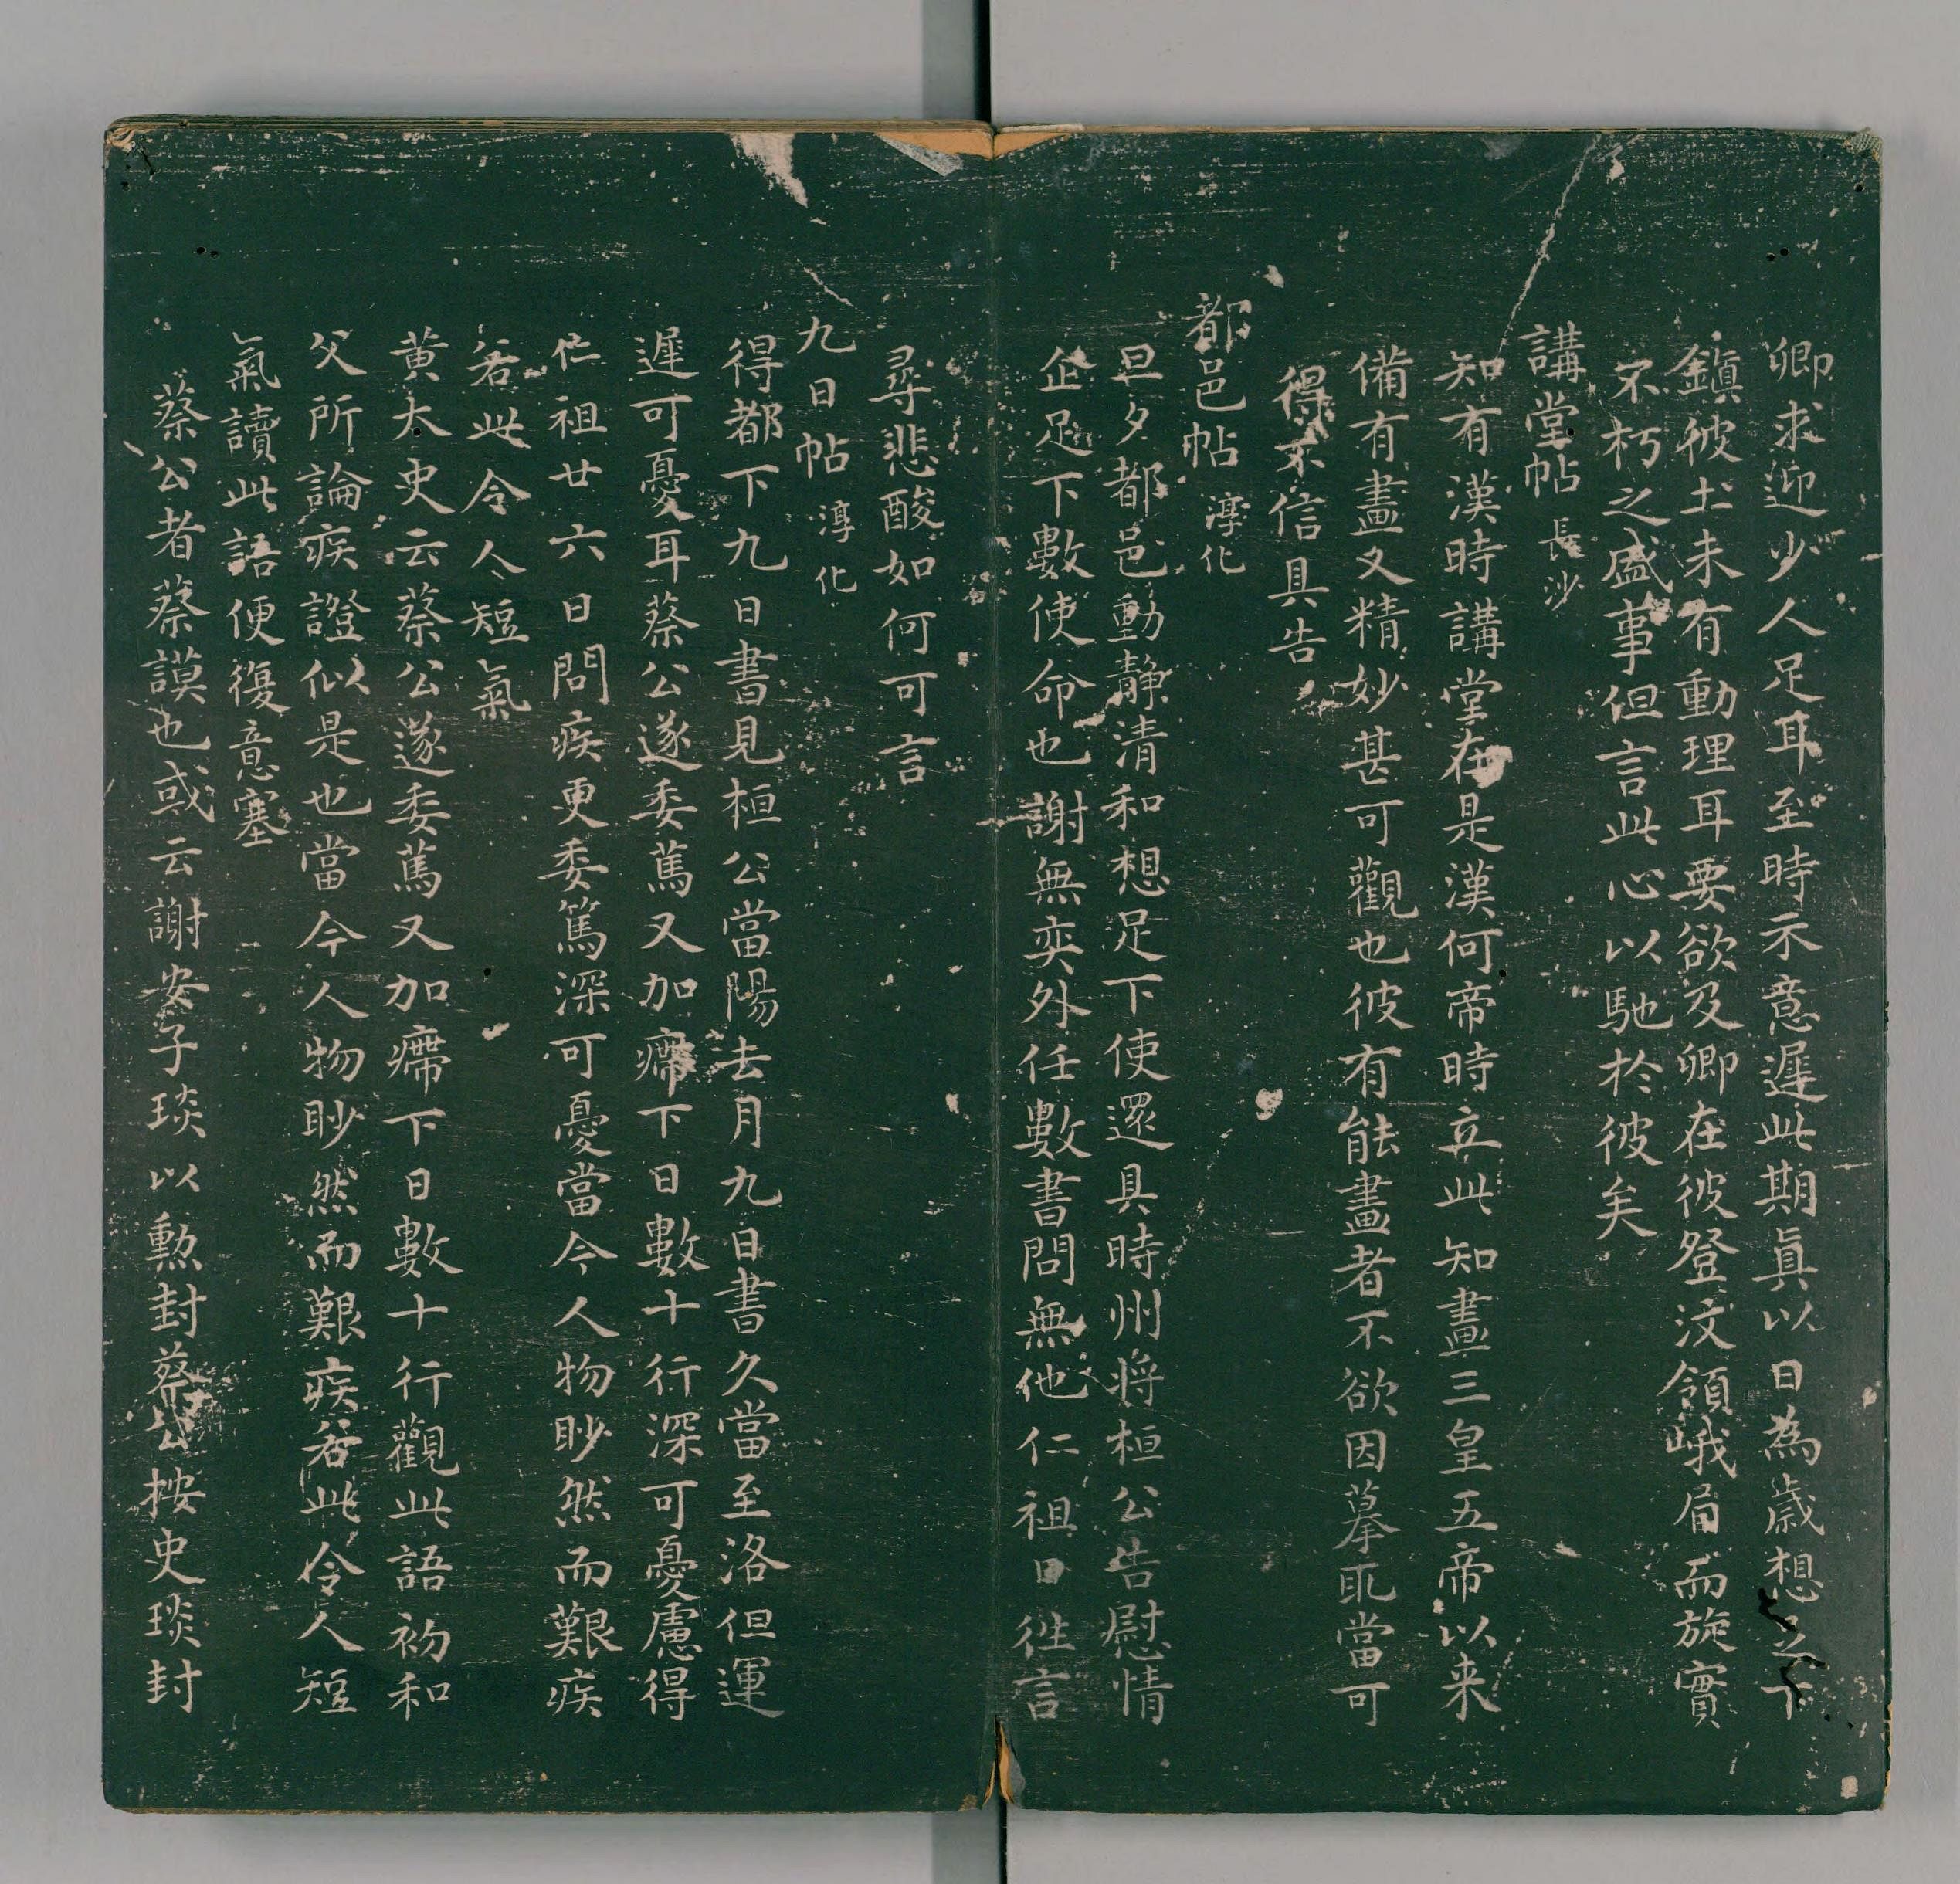 卿求迎少人足耳至時示意遲此期眞以日為歲想足下
鎮彼土未有動理耳要欲及卿在彼登汶領峨眉而旋實
不朽之盛事但言此心以馳於彼矣
講堂帖 長沙
知有漢時講堂在是漢何帝時立此知畫三皇五帝以来
備有畫又精妙甚可觀也彼有能畫者不欲因摹取當可
得不信具告
都邑帖 淳化
旦夕都邑動靜清和想足下使還具時州將桓公告慰情
企足下數使命也謝無奕外任數書問無他仁祖日往言
尋悲酸如何可言
九日帖 淳化
得都下九日書見桓公當陽去月九日書久當至洛但運
遲可憂耳蔡公遂委篤又加㿃下日數十行深可憂慮得
仁祖廿六日問疾更委篤深可憂當今人物眇然而艱疾
若此令人短氣
黃大史云蔡公遂委篤又加㿃下日數十行觀此語初和
父所論疾證似是也當今人物眇然而艱疾若此令人短
氣讀此語便復意塞
蔡公者蔡謨也或云謝安子琰以勲封蔡公按史琰封